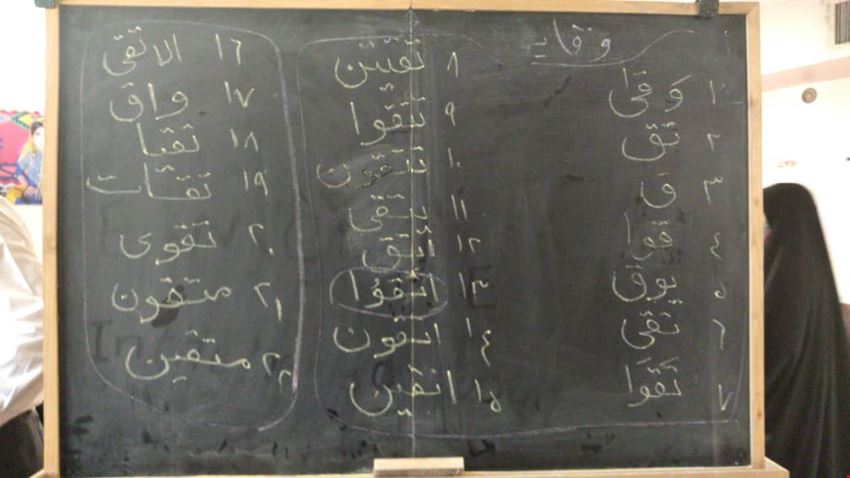 وقایه
١ وَقَیٰ
٢ تَق
٣ قِ
٤ قُوا
٥ یُوقَ
٦ تُقی
٧ تَقَوا
٨ تَقیٰتَن
٩ تَتَّقوا
١٠ تَتَّقون
١١ یتَّقی
١٢ اتَّق
١٣ اتَّقُوا
١٤ اتقون
١٥ اتقین
١٦ الاتقی
١٧ واق
١٨ تقیا
١٩ تقات
٢٠ تقوی
٢١ متقون
٢٢ متقین